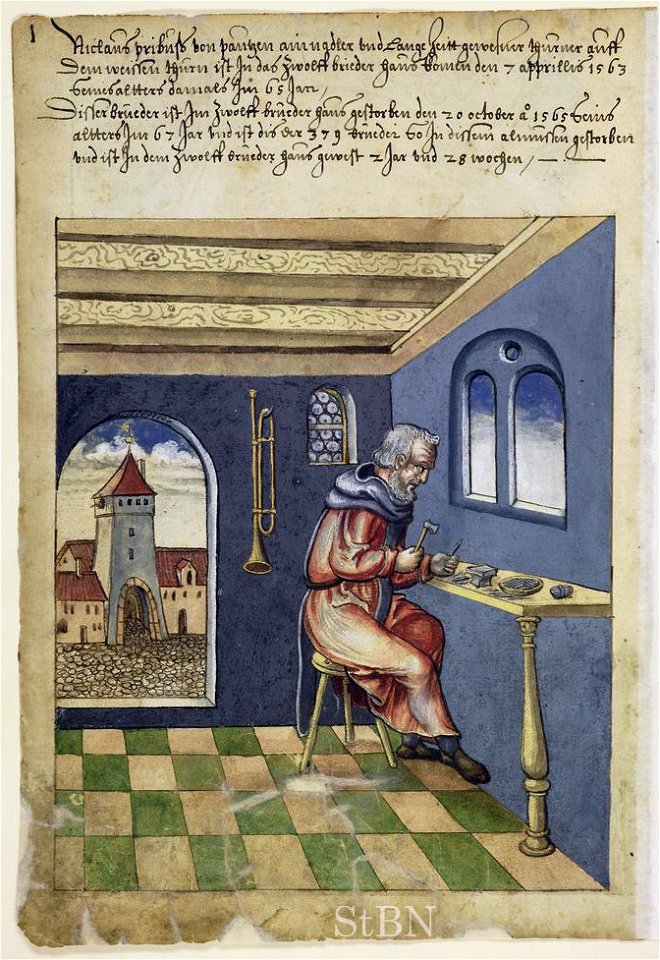 1
Niclaus pribuss von pautzen ain nadler vnd Lange Zeitt gewesner thurner auff
Dem weissen thurn ist In das Zwolff brüeder haus komen den 7 apprillis 1563
seines altters damals Im 65 Jar,
Disser brüeder ist Im Zwolff brüeder haus gestorben den 20 october a° 1565 seins
altters Im 67 Jar vnd ist dis der 379 brüeder so In dissem almussen gestorben
vnd ist In dem Zwolff brüeder haus gewest 2 Jar vnd 28 wochen,
StBN